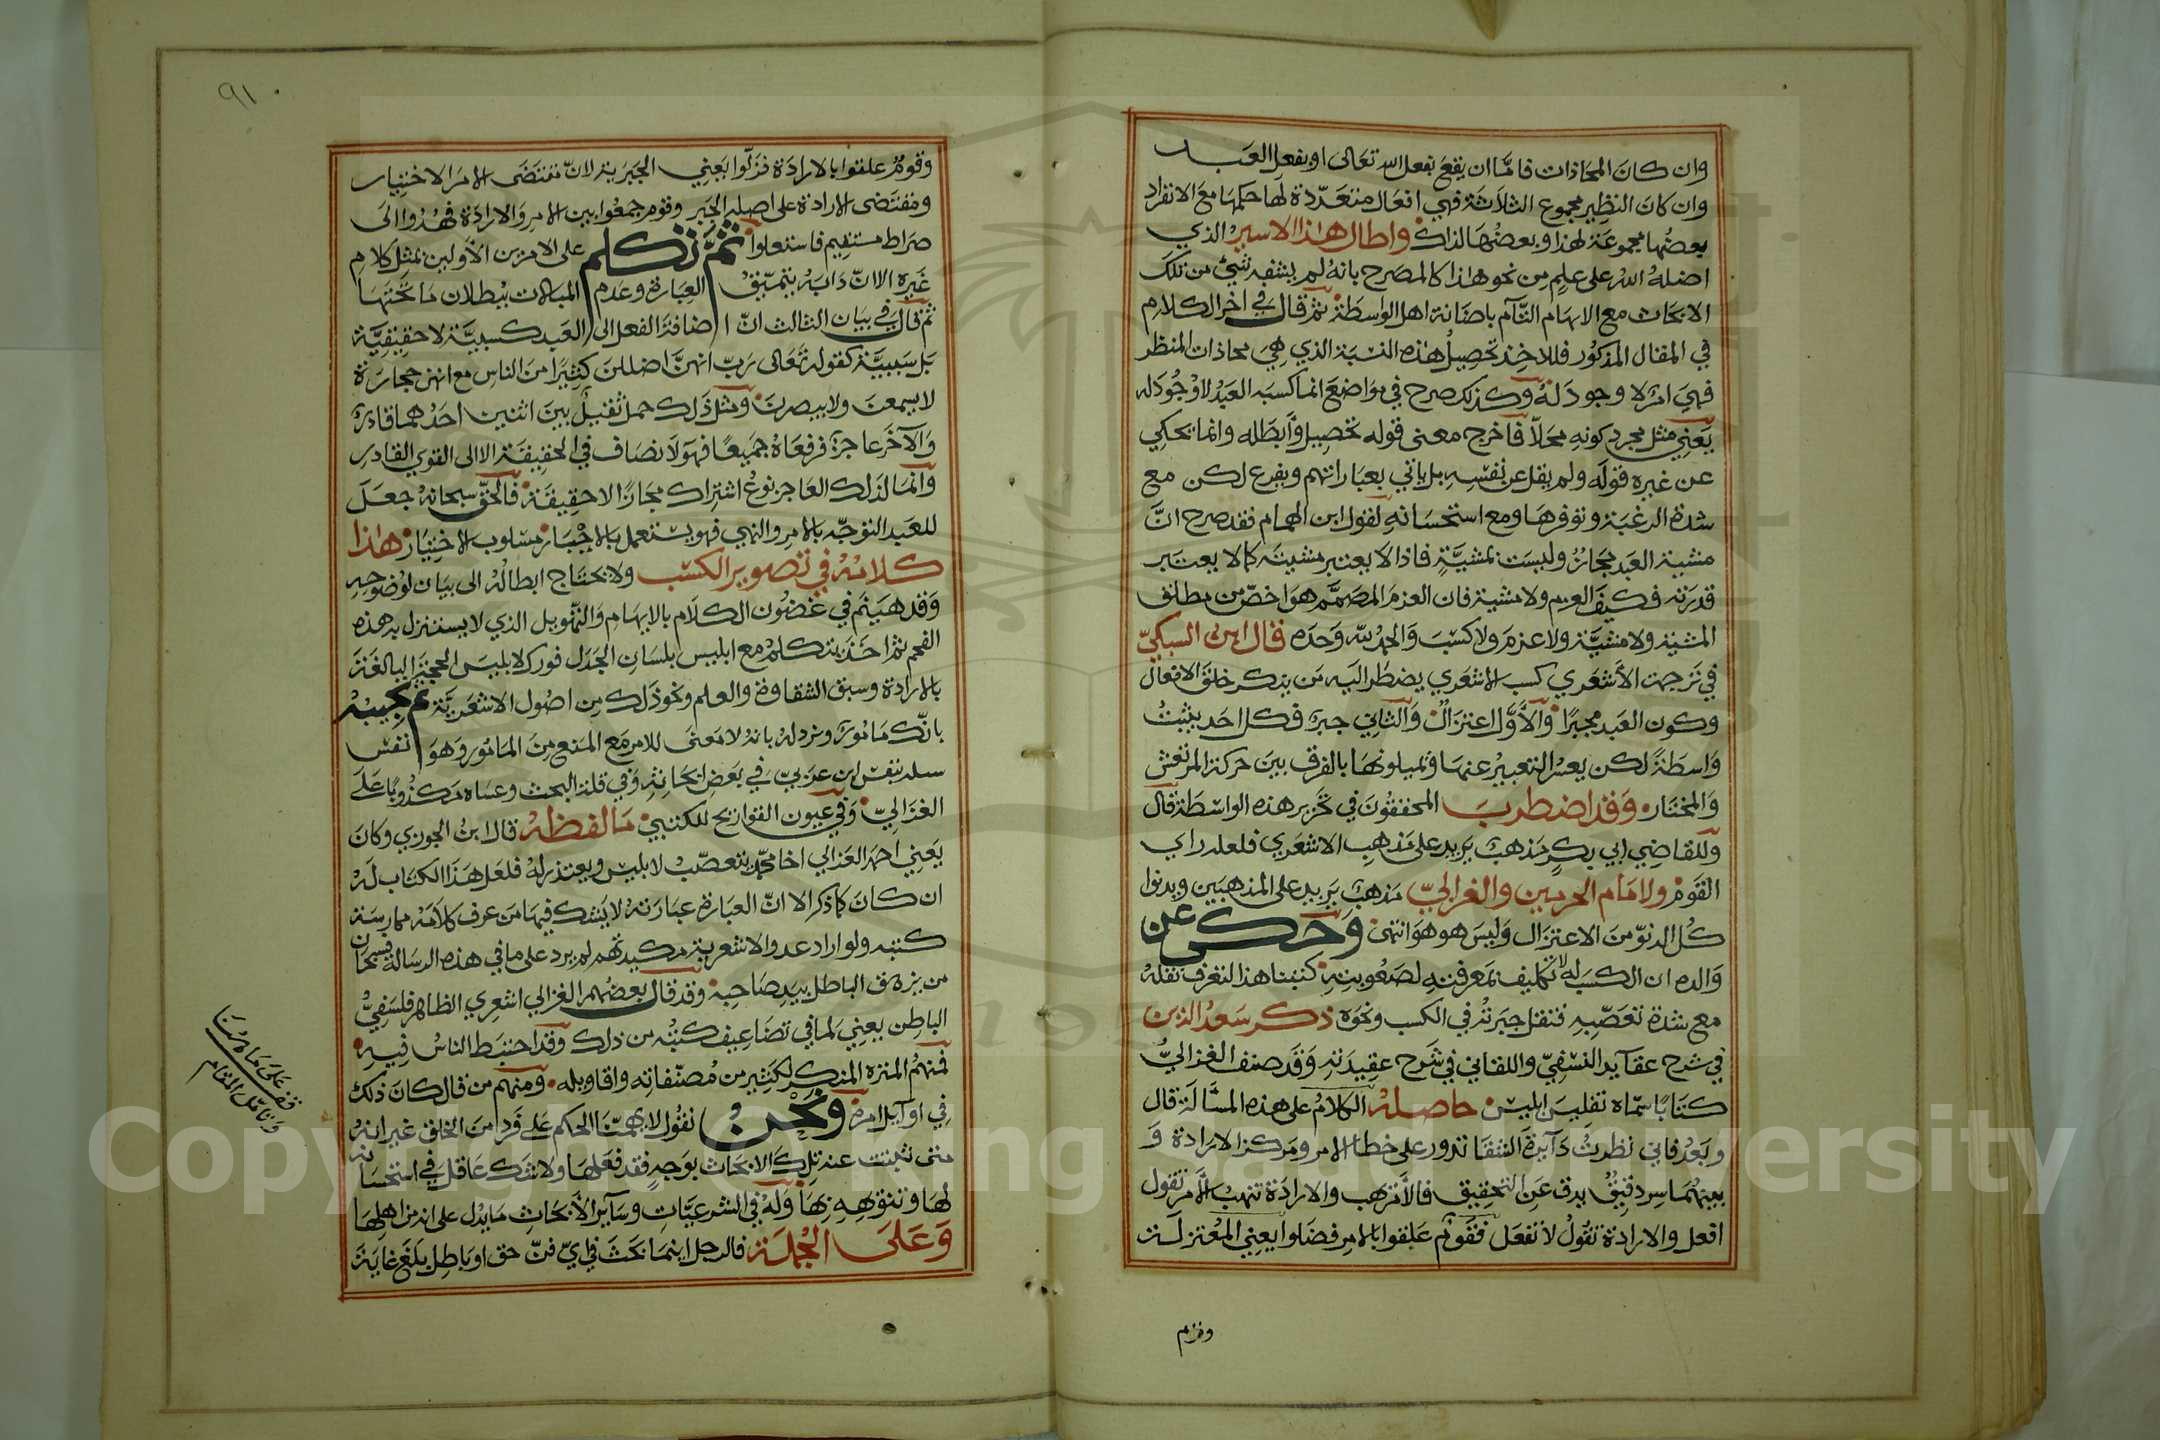 وان كان المحاذات فاما ان يقع بفعل الله تعالى او بفعل العبد
وان كان النظير مجموع الثلاثة فهي افعال متعددة لها حكمها مع الانفراد
بعضها مجموعة لهذا وبعضها لذاك واطال هذا الاسير الذي
اضله الله على علم من نحو هذا كالمصرح بانه لم يشفه شيئ من تلك
الابحاث مع الايهام التام باضانة اهل الواسطة ثم قال في اخر الكلام
في المقال المذكور فللاخذ تحصيل هذه النسبة الذي هي محاذات المنظر
فهي امر لا وجود له وكذلك صرح في مواضع انما كسبه العبد لا وجود له
يعني مثل مجرد كونه محلا فاخرج معنى قوله تحصيل وأبطله وانما يحكي
عن غيره قوله ولم يقل عن نفسه بل ياتي بعباراتهم ويفرع لكن مع
شدة الرغبة وتوفرها ومع استحسانه لقول ابن الهمام فقد صرح انّ
مشية العبد مجاز وليست بمشيّة فاذا لا يعتبر مشيته كما لا يعتبر
قدرته فكيف العزم ولا مشية فان العزم المصمّم هو اخصّ من مطلق
المشية ولا مشيّة ولا عزم ولا كسب والحمد لله وحده قال ابن السبكيّ
في ترجمة الأشعري كسب الاشعري يضطر اليه من ينكر خلق الافعال
وكون العبد مجبرًا والأوّل اعتزال والثاني جبر فكل احد يثبت
واسطة لكن يعسر التعبير عنها ويميلونها بالفرق بين حركة المرتعش
والمختار وقد اضطرب المحققون في تحرير هذه الواسطة قال
وللقاضي ابي بكر مذهب يزيد على مذهب الاشعري فلعله راي
القوم ولامام الحرمين والغزاليّ مذهب يزيد على المذهبين ويدنوا
كل الدنوّ من الاعتزال وليس هو هو انتهى وحكى عن
والده ان الكسب لا تكليف بمعرفته لصعوبته كتبنا هذا لتعرف نقله
مع شدة تعصّبه فنقل حيرتهم في الكسب ونحوه ذكر سعد الدين
في شرح عقآيد النسفيّ واللقاني في شرح عقيدته وقد صنف الغزاليّ
كتابًا سمّاه تفليس ابليس حاصله الكلام على هذه المسّالة قال
وبعد فاني نظرت دآيرة الشقا تدور على خطا الامر ومركز الارادة و
بينهما سر دقيق يدق عن التحقيق فالأمر هب والارادة تنهب الأمر تقول
افعل والارادة تقول لا تفعل فقوم علقوا بالامر فضلوا يعني المعتزلة
وقوم
٩١
وقوم علقوا بالارادة فزلّوا بعني الجبرية لانّ مقتضى الامر الاختيار
ومقتضى الارادة على اصله الجبر وقوم جمعوا بين الامر والارادة فهدوا الى
صراط مستقيم فاستعلوا ثمّ تكلم على الامرين الأولين بمثل كلام
غيره الا انّ دابه بتمّيق العبارة وعدم المبالات ببطلان ما تحتها
ثم قال في بيان الثالث انّ اضافة الفعل الى العبد كسبيّة لا حقيقيّة
بل سببيّة كقوله تعالى ربّ انهنّ اضللن كثيرًا من الناس مع انهن حجارة
لا يسمعن ولا يبصرن ومثل ذلك حمل ثقيل بين اثنين احدهما قادر
والآخر عاجز فرفعاه جميعًا فهو لا تضاف في الحقيقة الا الى القوي القادر
وانما لذلك العاجز نوع اشتراك مجازًا لا حقيقة فالحقّ سبحانه جعل
للعبد التوجّه بالامر والنهي فهو يستعمل بالاجبار مسلوب الاختيار هذا
كلامه في تصوير الكسب ولا يحتاج ابطاله الى بيان لوضوحه
وقد هينم في غضون الكلام بالايهام والتّهويل الذي لا يستنزل به هذه
الفحم ثم اخذ يتكلم مع ابليس بلسان الجدل فورك لابليس الحجيز البالغة
بالارادة وسبق الشقاوة والعلم ونحو ذلك من اصول الاشعريّة ثم يجيبه
بانّك مامور ويرد له بانه لا معنى للامر مع المنع من المامور وهو نفس
سلد بنفس ابن عربيّ في بعض ابحاثهم وفي قلة البحث وعساه مكذوبًا على
الغزاليّ وفي عيون التواريخ للكتبي ما لفظه قال ابن الجوزي وكان
يعني احمد الغزالي اخا محمّد يتعصّب لابليس ويعتذر له فلعل هذا الكتاب له
ان كان كما ذكر الا انّ العبارة عبارته لا يشك فيها من عرف كلامه ممارسة
كتبه ولو اراد عدو الاشعرية مكيدتهم لم يزد على ما في هذه الرسالة فسبحان
من يزهق الباطل بيد صاحبه وقد قال بعضهم الغزالي اشعري الظاهر فلسفيّ
الباطن يعني لما في تضاعيف كتبه من ذلك وقد اختبط الناس فيه
فمنهم المنزه المنكر لكثير من مصنّفاته واقاويله ومنهم من قال كان ذلك
في اوآيل امره ونحن نقول لا يهمّنا الحكم على فرد من الخلق غير انه
متى ثبتت عنه تلك الابحاث بوجه فقد فعلها ولا شك عاقل في استحسانه
لها وتفوهه بها وله في الشرعيّات وسآير الأبحاث ما يدل على انه من اهلها
وعلى الجملة فالرجل اينما بحث في ايّ فنّ حق او باطل بلغ غاية
قف على ما هنا
وتامل المقام
Copyright © King Saud University